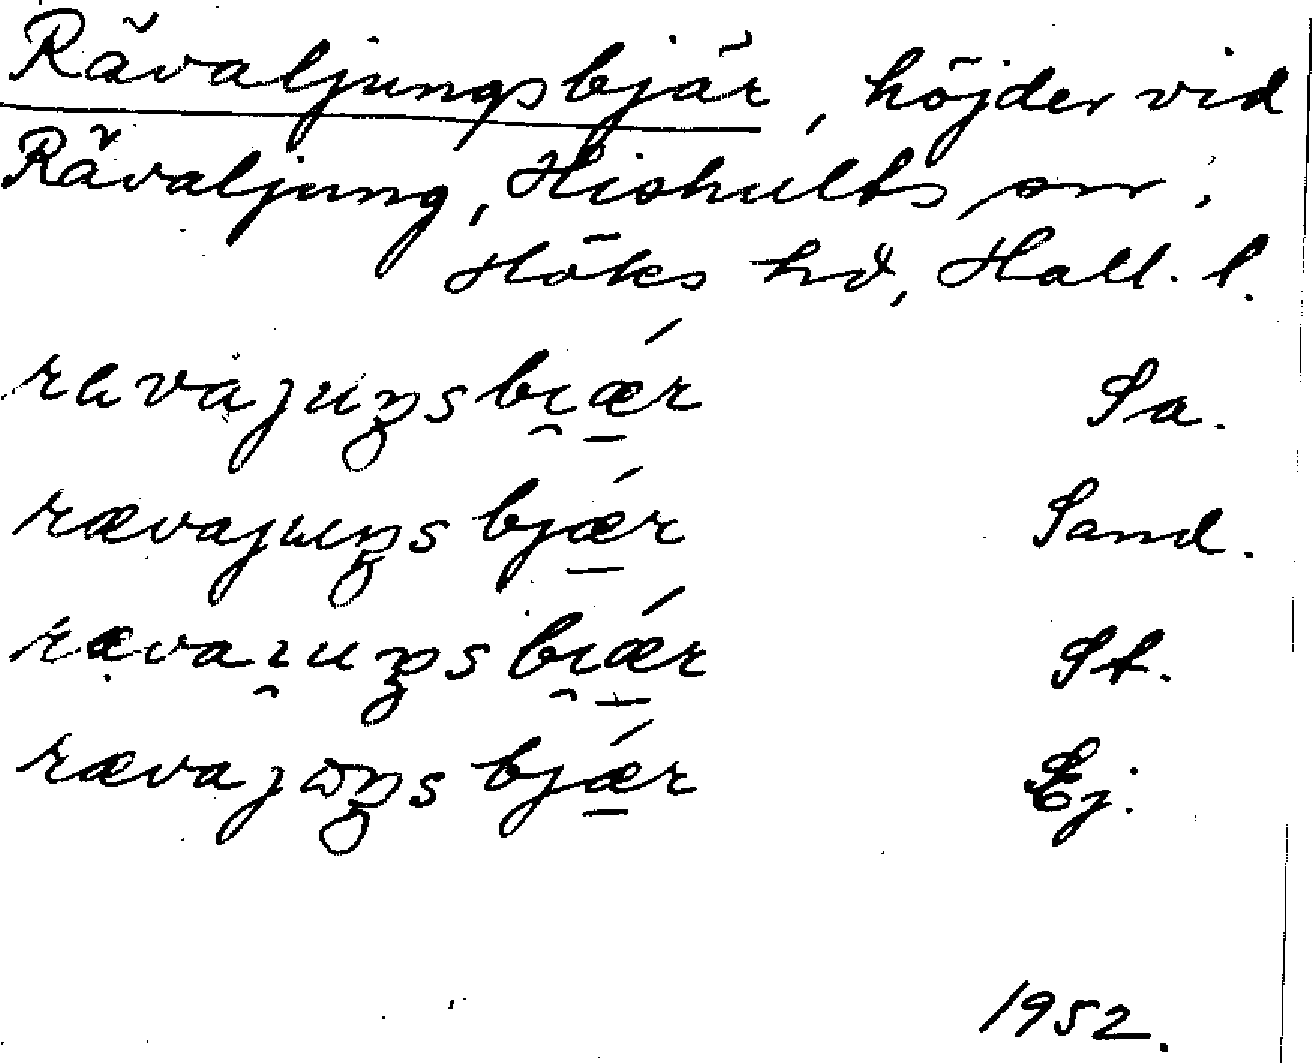 Rävaljungsbjär, höjder vid
Rävaljung, Hishults sn,
Höks hd, Hall. l.
ravajuŋsbi̯ǽr Sa.
rævajuŋsbjǽr Sand.
rævai̯uŋsbi̯ǽr St.
rævajωŋsbjǽr Ej.
1952.